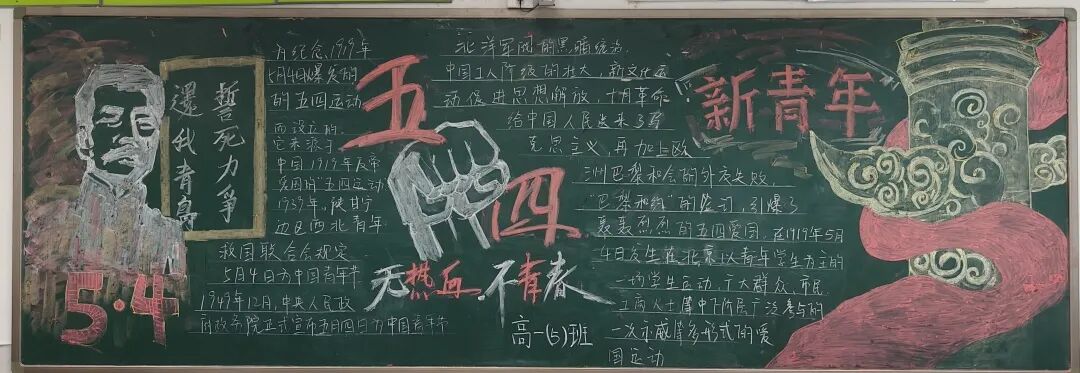 誓死力爭
還我青島
5·4
为纪念1919年
5月4日爆发的
的五四运动
而设立的.
它来源于
中国1919年反帝
爱国的"五四运动
1939年,陕甘宁
边区西北青年
救国联合会规定
5月4日为中国青年节
1949年12月,中央人民政
府政务院正式宣布五月四日为中国青年节
五四
无热血.不青春
高一(5)班
北洋军阀的黑暗统治.
中国工人阶级的壮大,新文化运
动促进思想解放,十月革命
给中国人民送来了马
克思主义,再加上欧
洲巴黎和会的外交失败,
"巴黎和约"的签订,引爆了
轰轰烈烈的五四爱国,在1919年5月
4日发生在北京以青年学生为主的
一场学生运动,广大群众,市民
工商人士等中下阶层广泛参与的
一次示威等多形式的爱
国运动
新青年